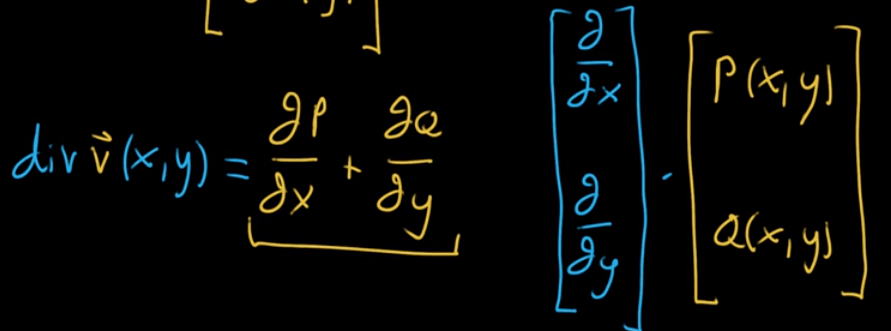 div v⃗(x,y) = ∂P/∂x + ∂Q/∂y
[∂/∂x ∂/∂y] · [P(x,y) Q(x,y)]